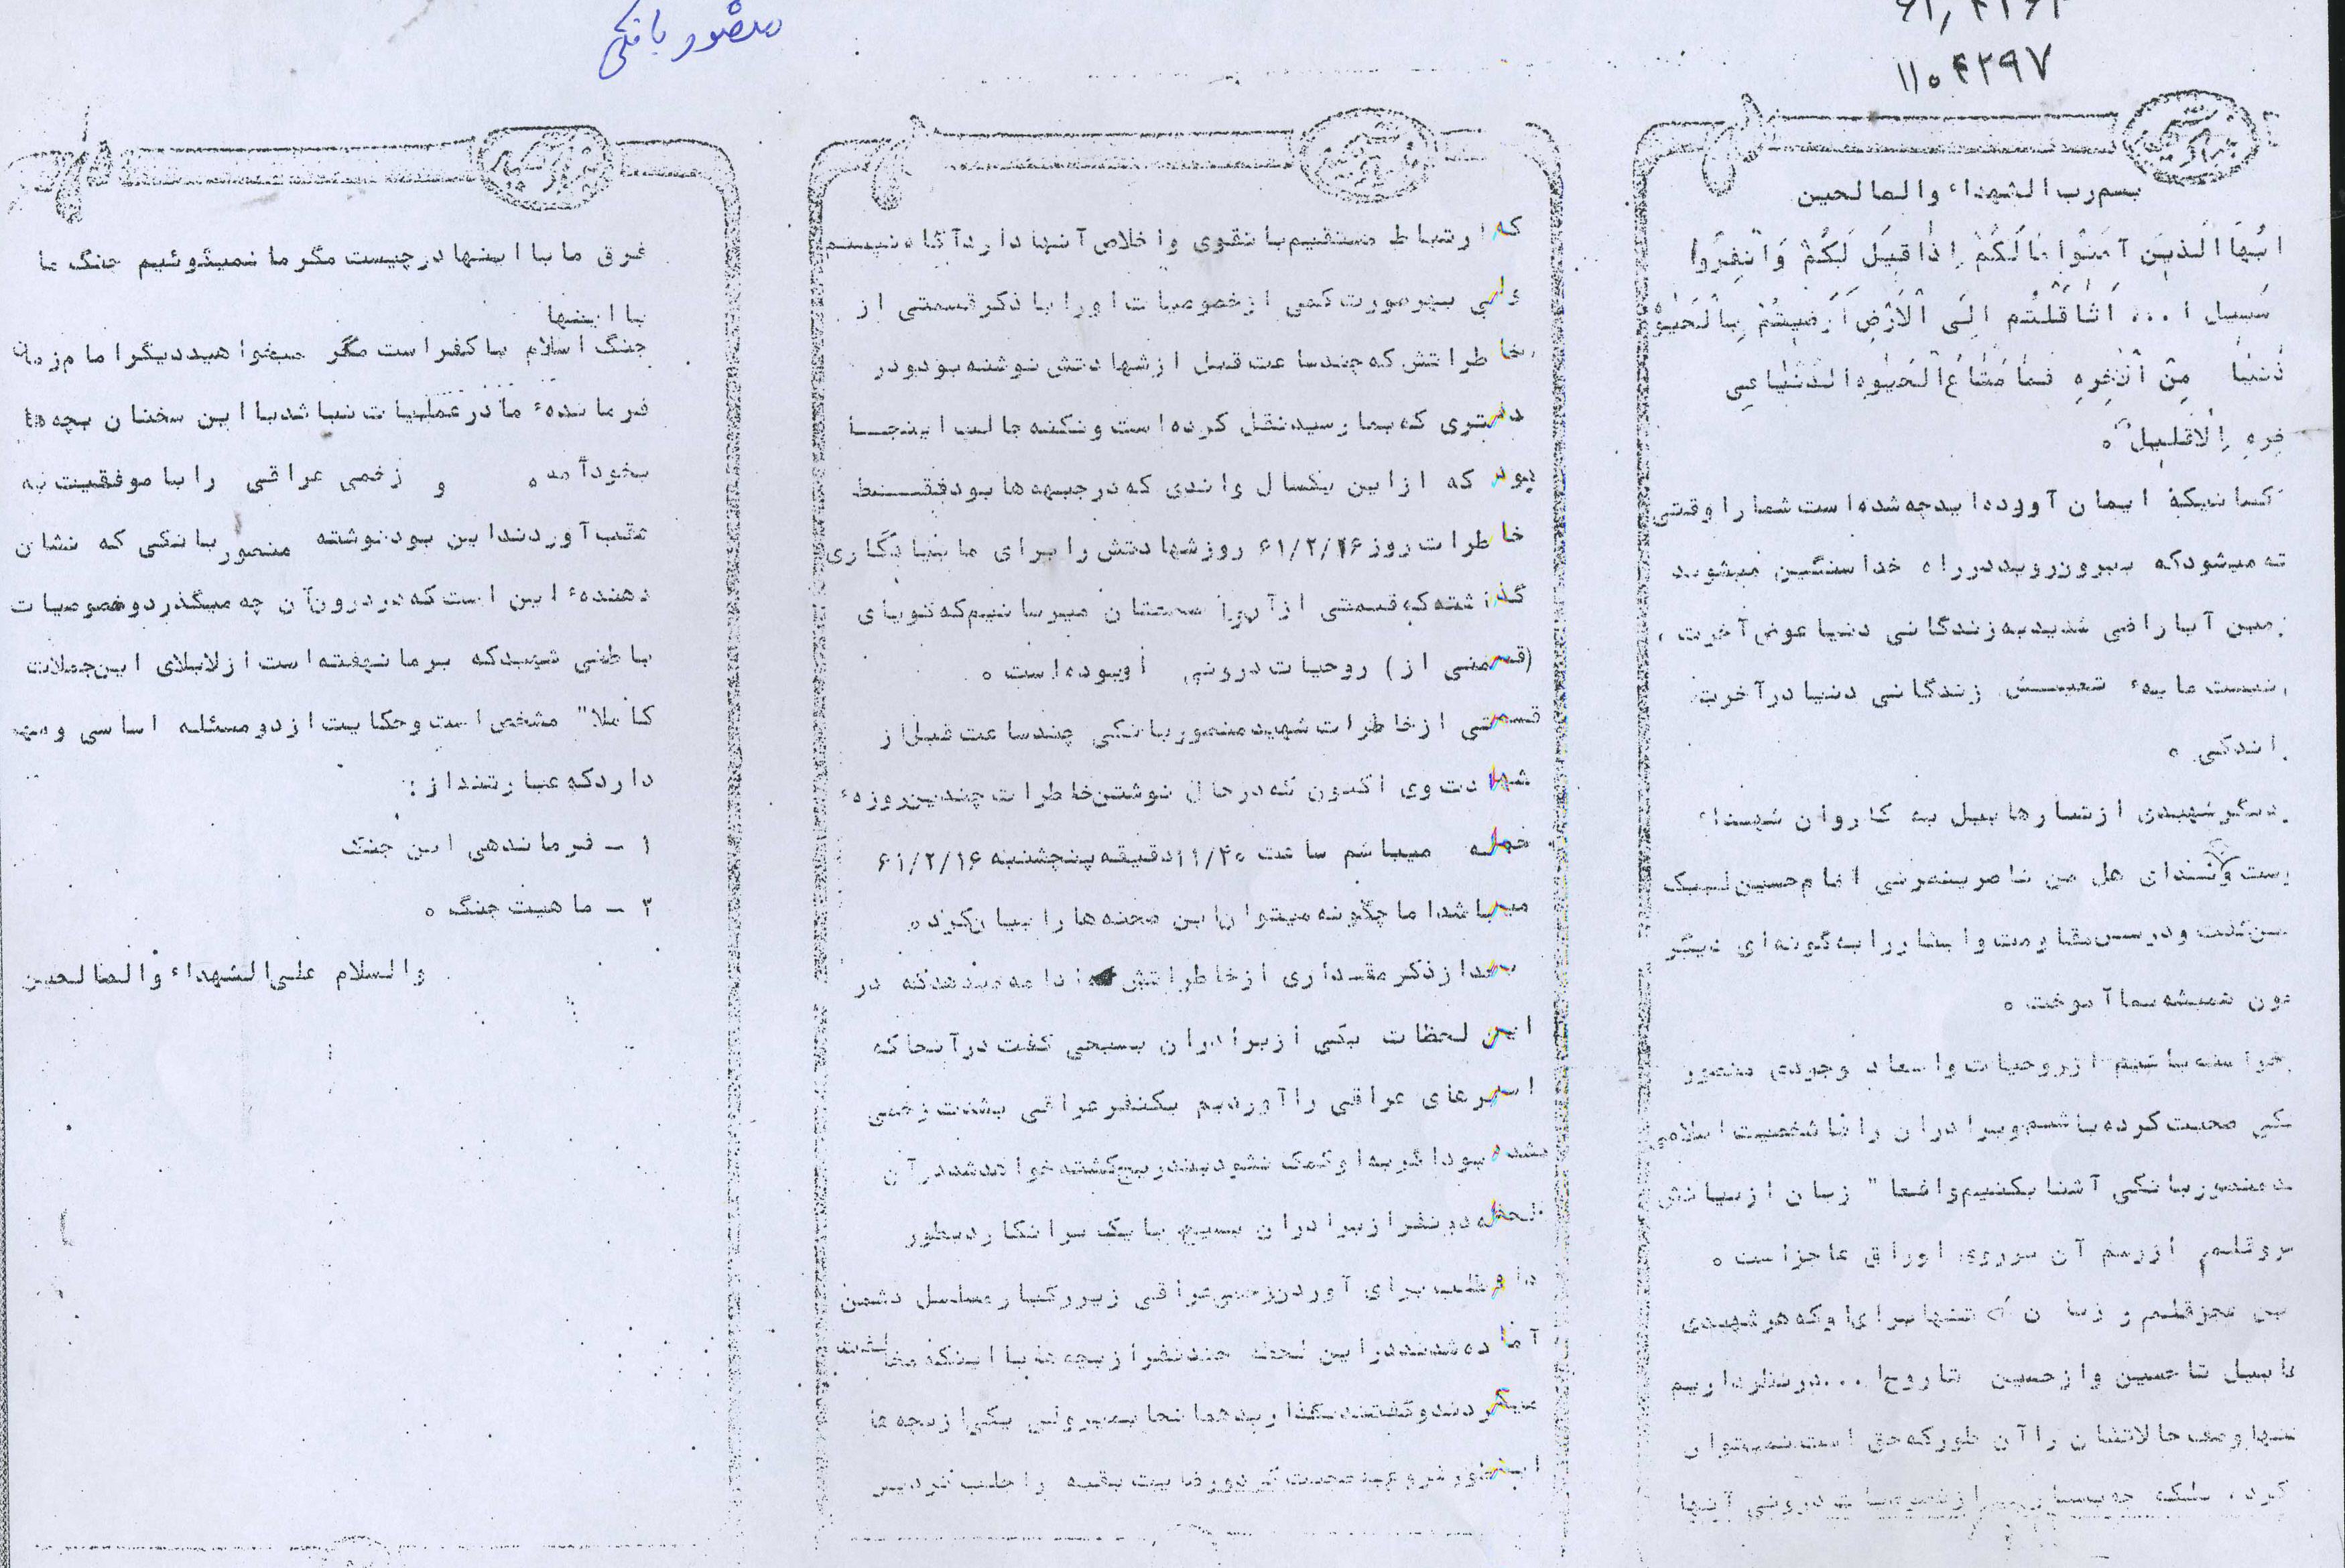 منصور بانکی
۱۱۰۴۲۹۷
بسم رب الشهداء والصالحین
ایها الذین آمنوا مالکم اذا قیل لکم وانفروا
سبیل ا... اثاقلتم الی الارض ارضیتم بالحیوة
دنیا من آخره فما متاع الحیوه الدنیا فی
خره الا قلیل ه
کسانیکه ایمان آوردداید چه شده است شما را وقتی
ته میشود که بیرون روید در راه خدا سنگین میشوید
زمین آیا راضی شدید به زندگانی دنیا عوض آخرت ،
نیست مایهء تعیش زندگانی دنیا در آخرت
اندکی ه
دیگر شهیدی از تبار هابیل به کاروان شهداء
وست و ندای هل من ناصر ینصرنی امام حسین لبیک
گفت و درس مقاومت و ایثار را به گونه ای دیگر
چون همیشه بما آموخت ه
خواسته باشیم از روحیات و ابعاد وجودی منصور
نکی صحبت کرده باشیم و برادران را با شخصیت اسلامی
ید منصور بانکی آشنا بکنیم واقعا " زبان از بیانش
سر و قلم از رسم آن بر روی اوراق عاجز است ه
این عجز قلم و زبان نه تنها برای او که هر شهیدی
هابیل تا حسین و از حسین تا روح ا ... در نظر داریم
تنها وصف حالاتشان را آن طور که حق است نمیتوان
کرد ، بلکه درونی آنها
که ارتباط مستقیم با تقوی و اخلاص آنها دارد آگاه نیستم
ولی بهر صورت کمی از خصوصیات او را با ذکر قسمتی از
خاطراتش که چند ساعت قبل از شهادتش نوشته بود و در
دفتری که بما رسید نقل کرده است و نکته جالب اینجا
بود که از این یکسال و اندی که در جبهه ها بود فقط
خاطرات روز ۶۱/۲/۱۶ روز شهادتش را برای ما بنیادگاری
گذاشته که قسمتی از آن را بسمعتان میرسانیم که گویای
(قسمتی از ) روحیات درونی او بوده است ه
قسمتی از خاطرات شهید منصور بانکی چند ساعت قبل از
شهادت وی اکنون که در حال نوشتن خاطرات چندین روزهء
حمله میباشم ساعت ۱۱/۴۰ دقیقه پنجشنبه ۶۱/۲/۱۶
میباشد اما چگونه میتوان این صحنه ها را بیان کرده
بعد از ذکر مقداری از خاطراتش ادامه میدهد که در
این لحظات یکی از برادران بسیجی گفت در آنجا که
اسیرهای عراقی را آوردیم یکنفر عراقی بشدت زخمی
شده بود اگر به او کمک نشود بتدریج کشته خواهد شد در آن
لحظه دو نفر از برادران بسیج با یک برانکارد بطور
داوطلب برای آوردن زخمی عراقی زیر رگبار مسلسل دشمن
آماده شدند در این لحظه چند نفر از بچه ها با اینکه مخالفت
میکردند و گفتند بگذارید همانجا بمیرد ولی یکی از بچه ها
اینطور شروع به صحبت کرد و رضایت بقیه را جلب کرد پس
فرق ما با اینها در چیست مگر ما نمیگوئیم جنگ ما
با اینها
جنگ اسلام با کفر است مگر میخواهید دیگر امام زمان
فرماندهء ما در عملیات نباشد با این سخنان بچه ها
بخود آمده و زخمی عراقی را با موفقیت به
عقب آوردند این بود نوشته منصور بانکی که نشان
دهندهء این است که در درون آن چه میگذرد و خصوصیات
باطنی شهید که بر ما نهفته است از لابلای این جملات
کاملا" مشخص است و حکایت از دو مسئله اساسی و مهم
دارد که عبارتند از :
۱ ـ فرماندهی این جنگ
۲ ـ ماهیت جنگ ه
والسلام علی الشهداء والصالحین